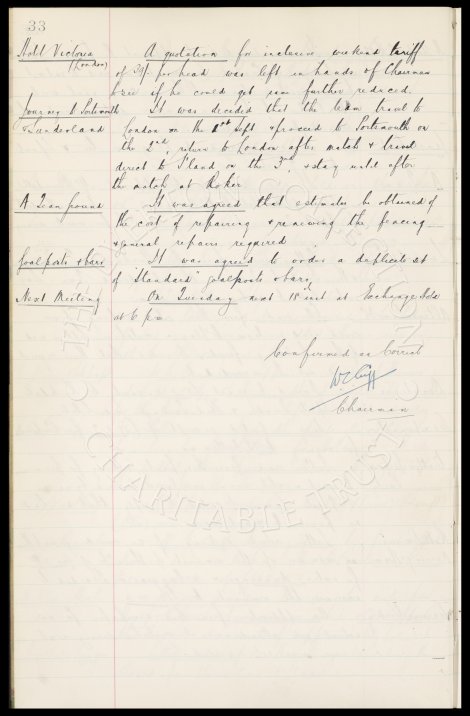 33
Hotel Victoria
(London)
A quotation for inclusive weekend tariff
of 39/- per head was left in hands of Chairman
to see if he could get same further reduced.
Journey to Portsmouth
& Sunderland
It was decided that the team travel to
London on the 1st Sept & proceed to Portsmouth on
the 2nd, return to London after match & travel
direct to S'land on the 3rd, & stay until after
the match at Roker
A Team Ground
It was agreed that estimates be obtained of
the cost of repairing & renewing the fencing
& general repairs required
Goalposts & bars
It was agreed to order a duplicate set
of "Standard" goalposts & bars
Next Meeting
On Tuesday next 18th inst at Exchange Hotel
at 6 pm
Confirmed as Correct
WC Cuff
Chairman
CHARITABLE TRUST